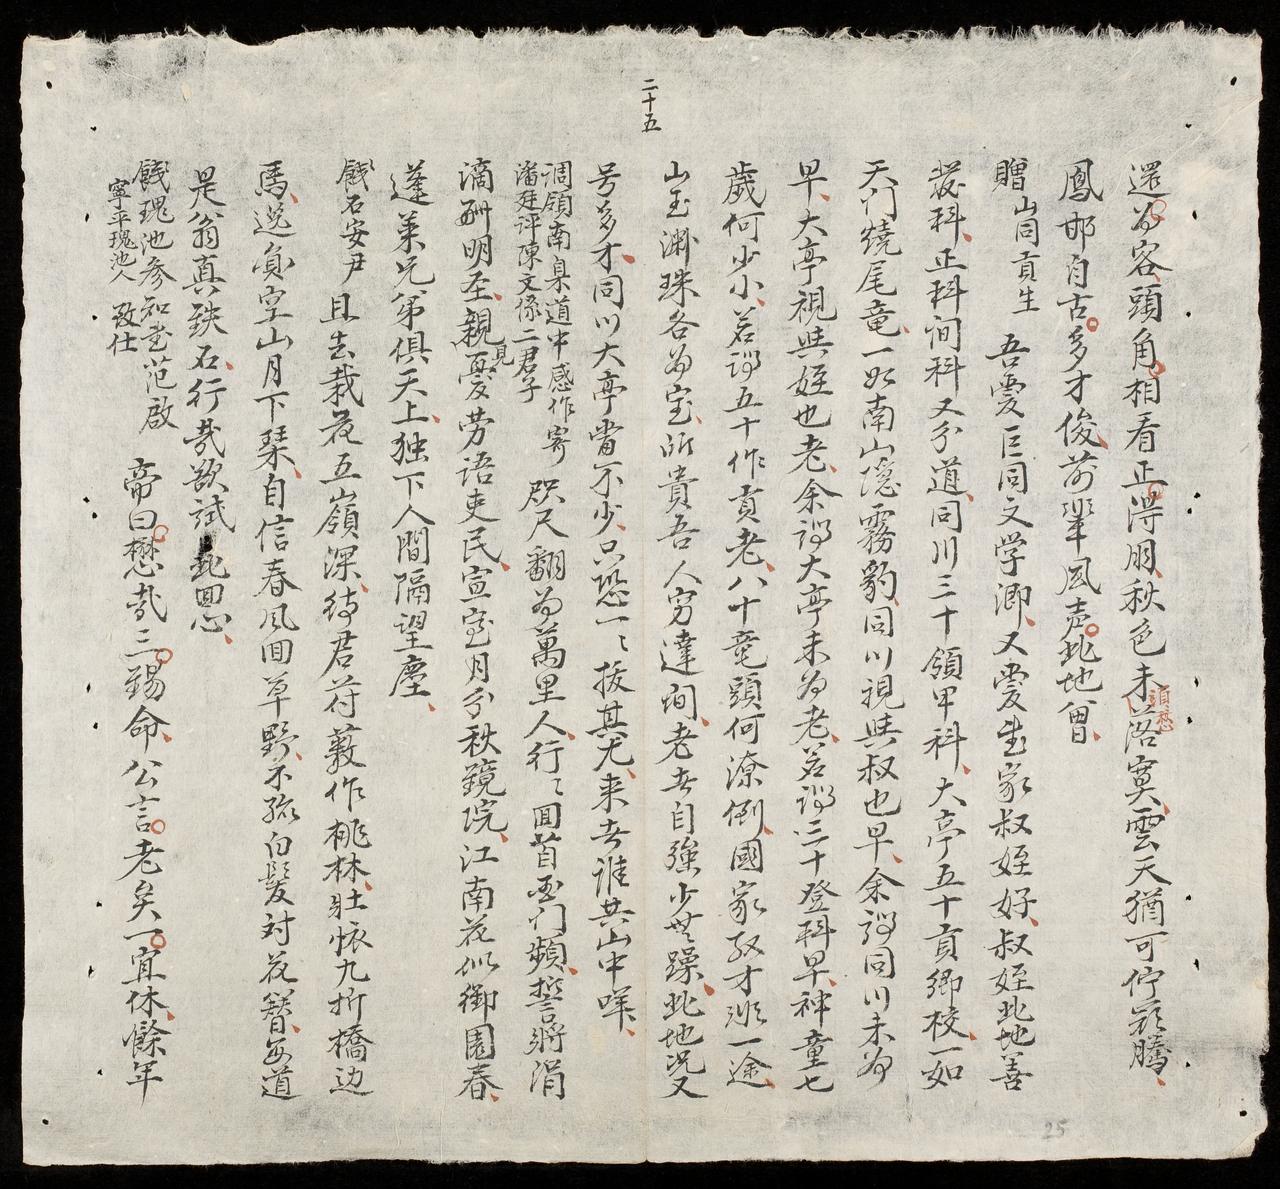 二十五
還为容頭角相看正得朋秋色未落寞雲天猶可佇飛騰
須愁
鳳邯自古多才俊前輩風声此地曾
贈山同貢生 吾愛巨同文学溆又愛生家叔姪好叔姪此地善
發科正科间科又分道同川三十領甲科大亭五十貢卿校一如
天門燒尾竜一如南山隱霧豹同川視其叔也早余謂同川未为
早大亭視其姪也老余謂大亭未为老若謂三十登科早神童七
歲何少小若謂五十作貢老八十竜頭何潦倒國家取才非一途
山玉渊珠各为宝所貴吾人窮達间老去自強少無躁此地况又
号多才同川大亭當不少只恐一一拔其尤来者谁共山中咲
调領南臬道中感作寄
潘廷评陳文像二君子
咫尺翻为萬里人行行囬首玉门頻誓將涓
滴酬明至親見憂劳语吏民宣室月分秋鏡院江南花似御園春
蓬萊兄弟俱天上独下人間隔望塵
餞石安尹 且去栽花五嶺深待君苻藪作桃林壯懷九折橋边
馬逸負空山月下琴自信春風囬草野不孤白髮对花簪每道
是翁真鉄石行哉欲试此囬心
餞瑰池参知台范啟
寧平瑰池人 致仕
帝曰懋哉三錫命公言老矣一宜休餘年
25